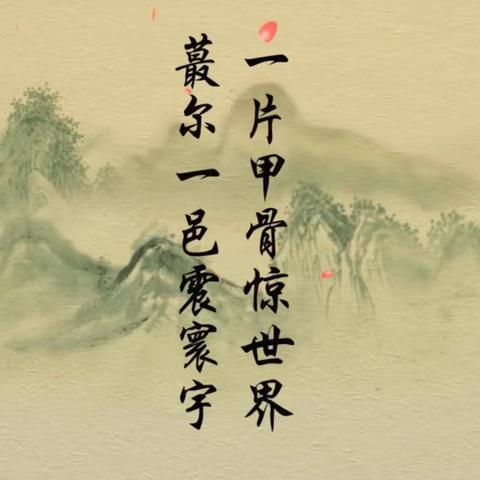 一片甲骨惊世界
蕞尔一邑震寰宇